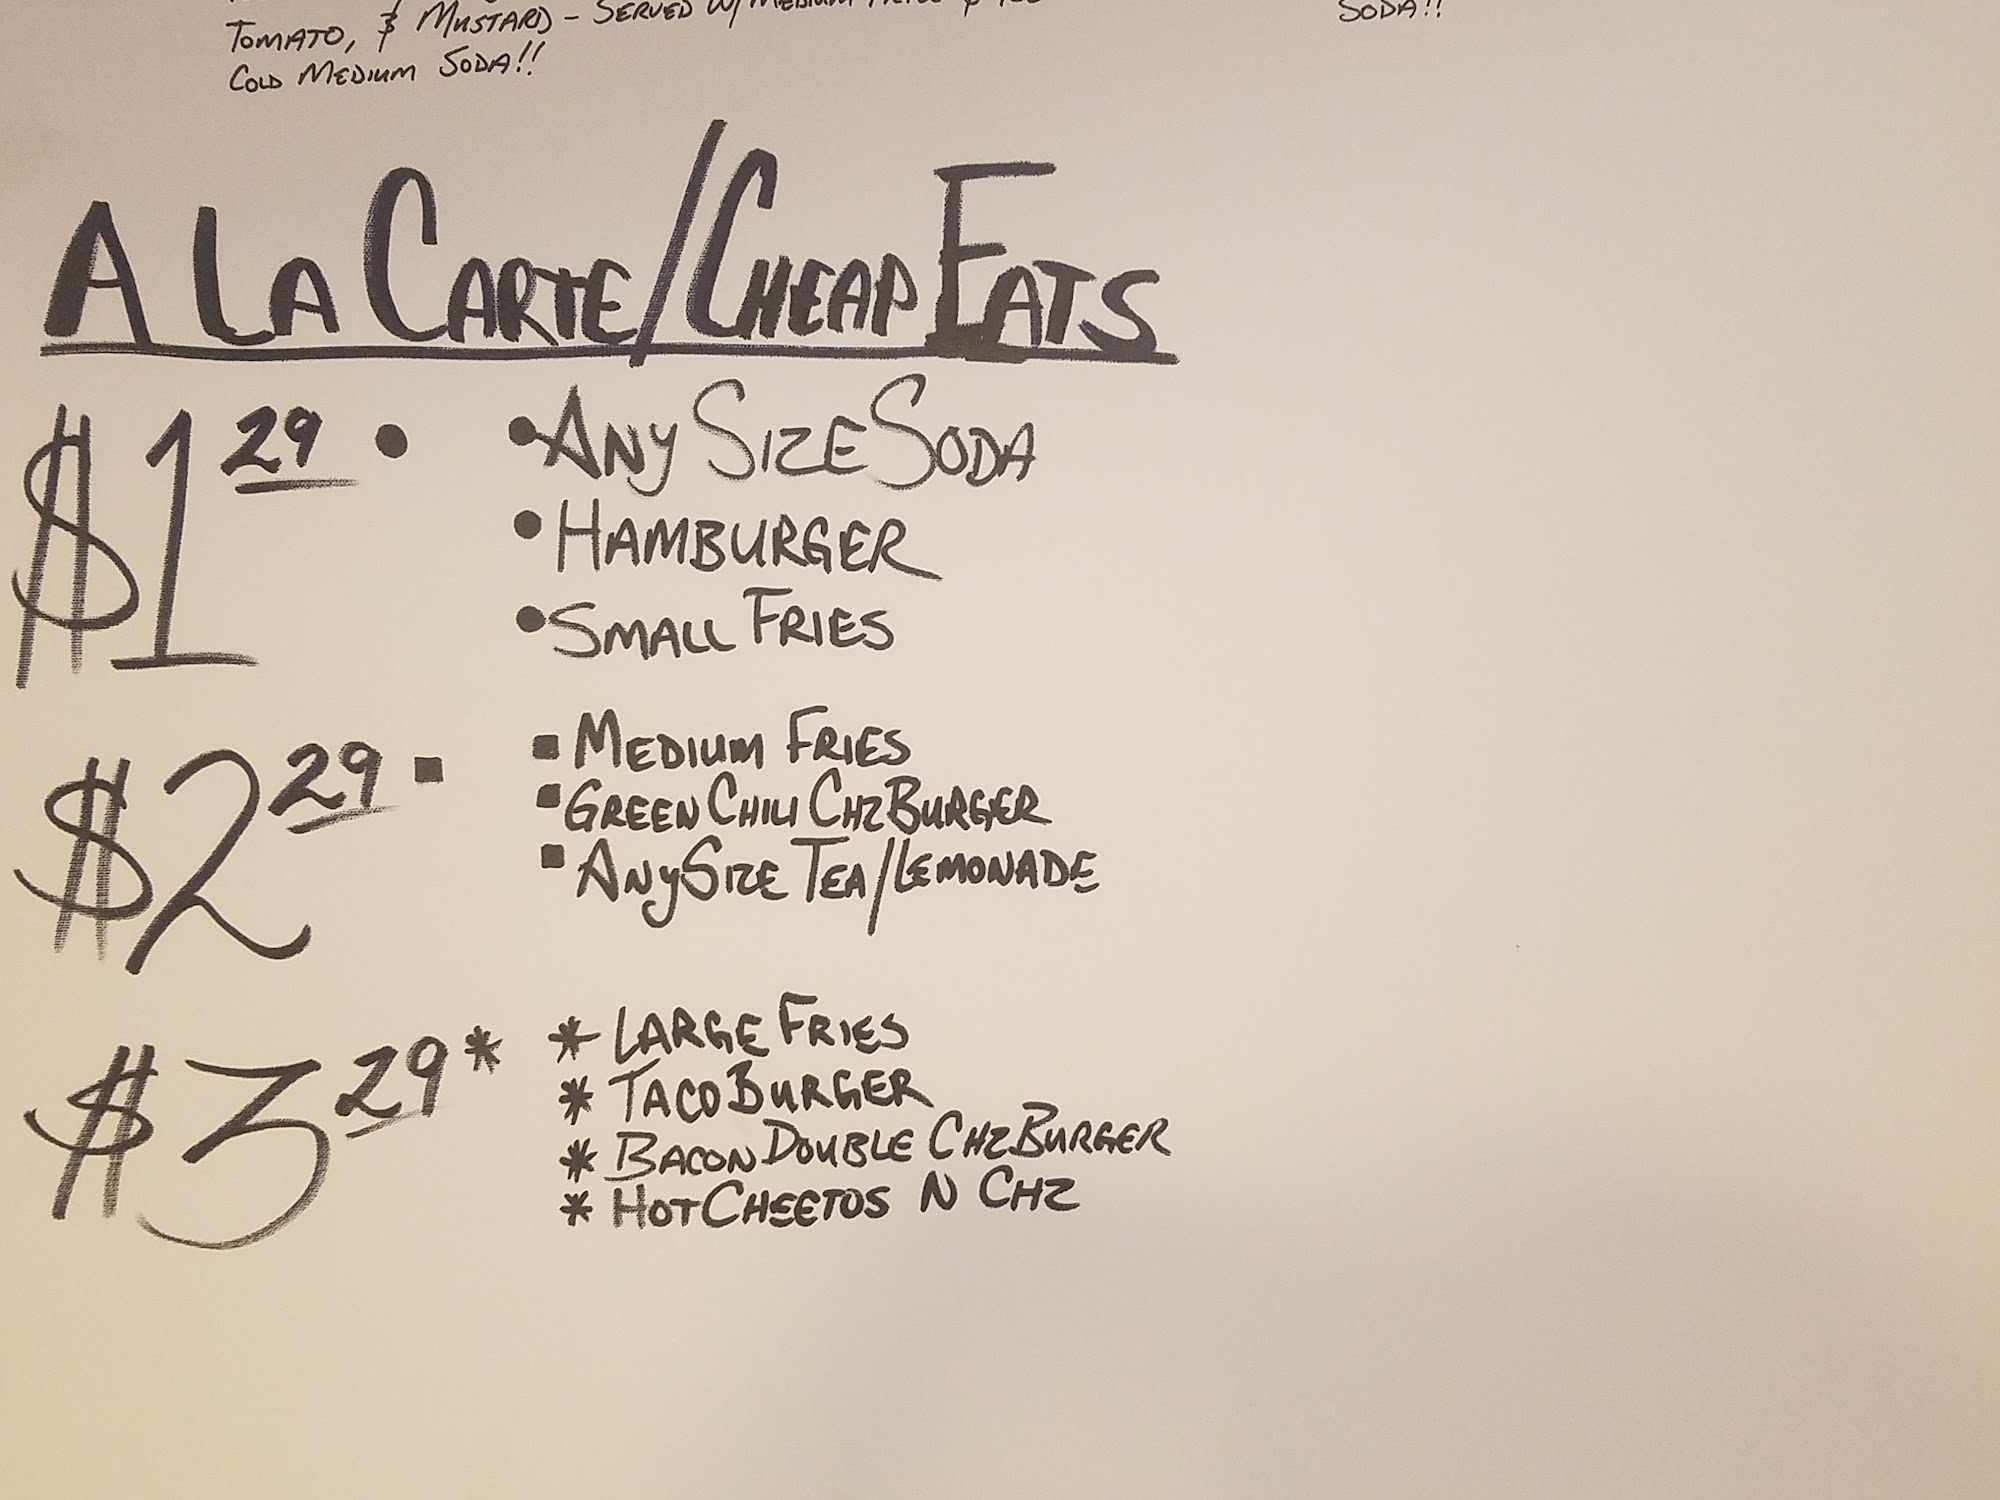 Tomato, & Mustard - Served w/ Medium
Soda!!
Cold Medium Soda!!
A La Carte/Cheap Eats
$1 29 • • Any Size Soda
• Hamburger
• Small Fries
$2 29 ▪ ▪ Medium Fries
▪ Green Chili Chz Burger
▪ Any Size Tea/Lemonade
$3 29 * * Large Fries
* Taco Burger
* Bacon Double Chz Burger
* Hot Cheetos N Chz